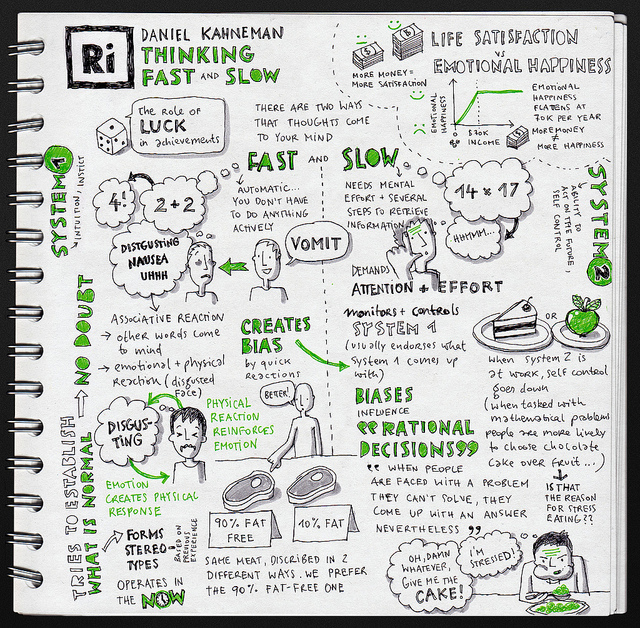 Ri
DANIEL KAHNEMAN
THINKING
FAST AND SLOW
LIFE SATISFACTION
VS
EMOTIONAL HAPPINESS
MORE MONEY =
MORE SATISFACTION
EMOTIONAL
HAPPINESS
$70K
INCOME
EMOTIONAL
HAPPINESS
FLATENS AT
70K PER YEAR
MORE MONEY
≠
MORE HAPPINESS
The Role of
LUCK
in achievements
THERE ARE TWO WAYS
THAT THOUGHTS COME
TO YOUR MIND
FAST AND SLOW
SYSTEM 1
INTUITION, INSTICT
4!
2+2
AUTOMATIC...
YOU DON'T HAVE
TO DO ANYTHING
ACTIVELY
DISTGUSTING
NAUSEA
UHHH
VOMIT
NO DOUBT
ASSOCIATIVE REACTION
→ other words come
to mind
→ emotional + physical
Reaction (disgusted
Face)
CREATES
BIAS
by quick
Reactions
DISGUS-
TING
PHYSICAL
REACTION
REINFORCES
EMOTION
EMOTION
CREATES PHYSICAL
RESPONSE
TRIES TO ESTABLISH
WHAT IS NORMAL
FORMS
STEREO-
TYPES
BASED ON
PREVIOUS
EXPERIENCE
OPERATES IN
THE NOW
BETTER!
90% FAT
FREE
10% FAT
SAME MEAT, DISCRIBED IN 2
DIFFERENT WAYS. WE PREFER
THE 90% FAT-FREE ONE
SYSTEM 2
ABILITY TO
ACT ON THE FUTURE,
SELF CONTROL
NEEDS MENTAL
EFFORT + SEVERAL
STEPS TO RETRIEVE
INFORMATION
14 x 17
HHMMM...
DEMANDS
ATTENTION + EFFORT
monitors + controls
SYSTEM 1
(usually endorses what
System 1 comes up
with)
BIASES
INFLUENCE
"RATIONAL
DECISIONS"
" WHEN PEOPLE
ARE FACED WITH A PROBLEM
THEY CAN'T SOLVE, THEY
COME UP WITH AN ANSWER
NEVERTHELESS "
OR
when system 2 is
at work, self control
goes down
(when tasked with
mathematical problems
people are more likely
to choose chocolate
cake over fruit...)
IS THAT
THE REASON
FOR STRESS
EATING??
OH, DAMN
WHATEVER,
GIVE ME THE
CAKE!
I'M
STRESSED!